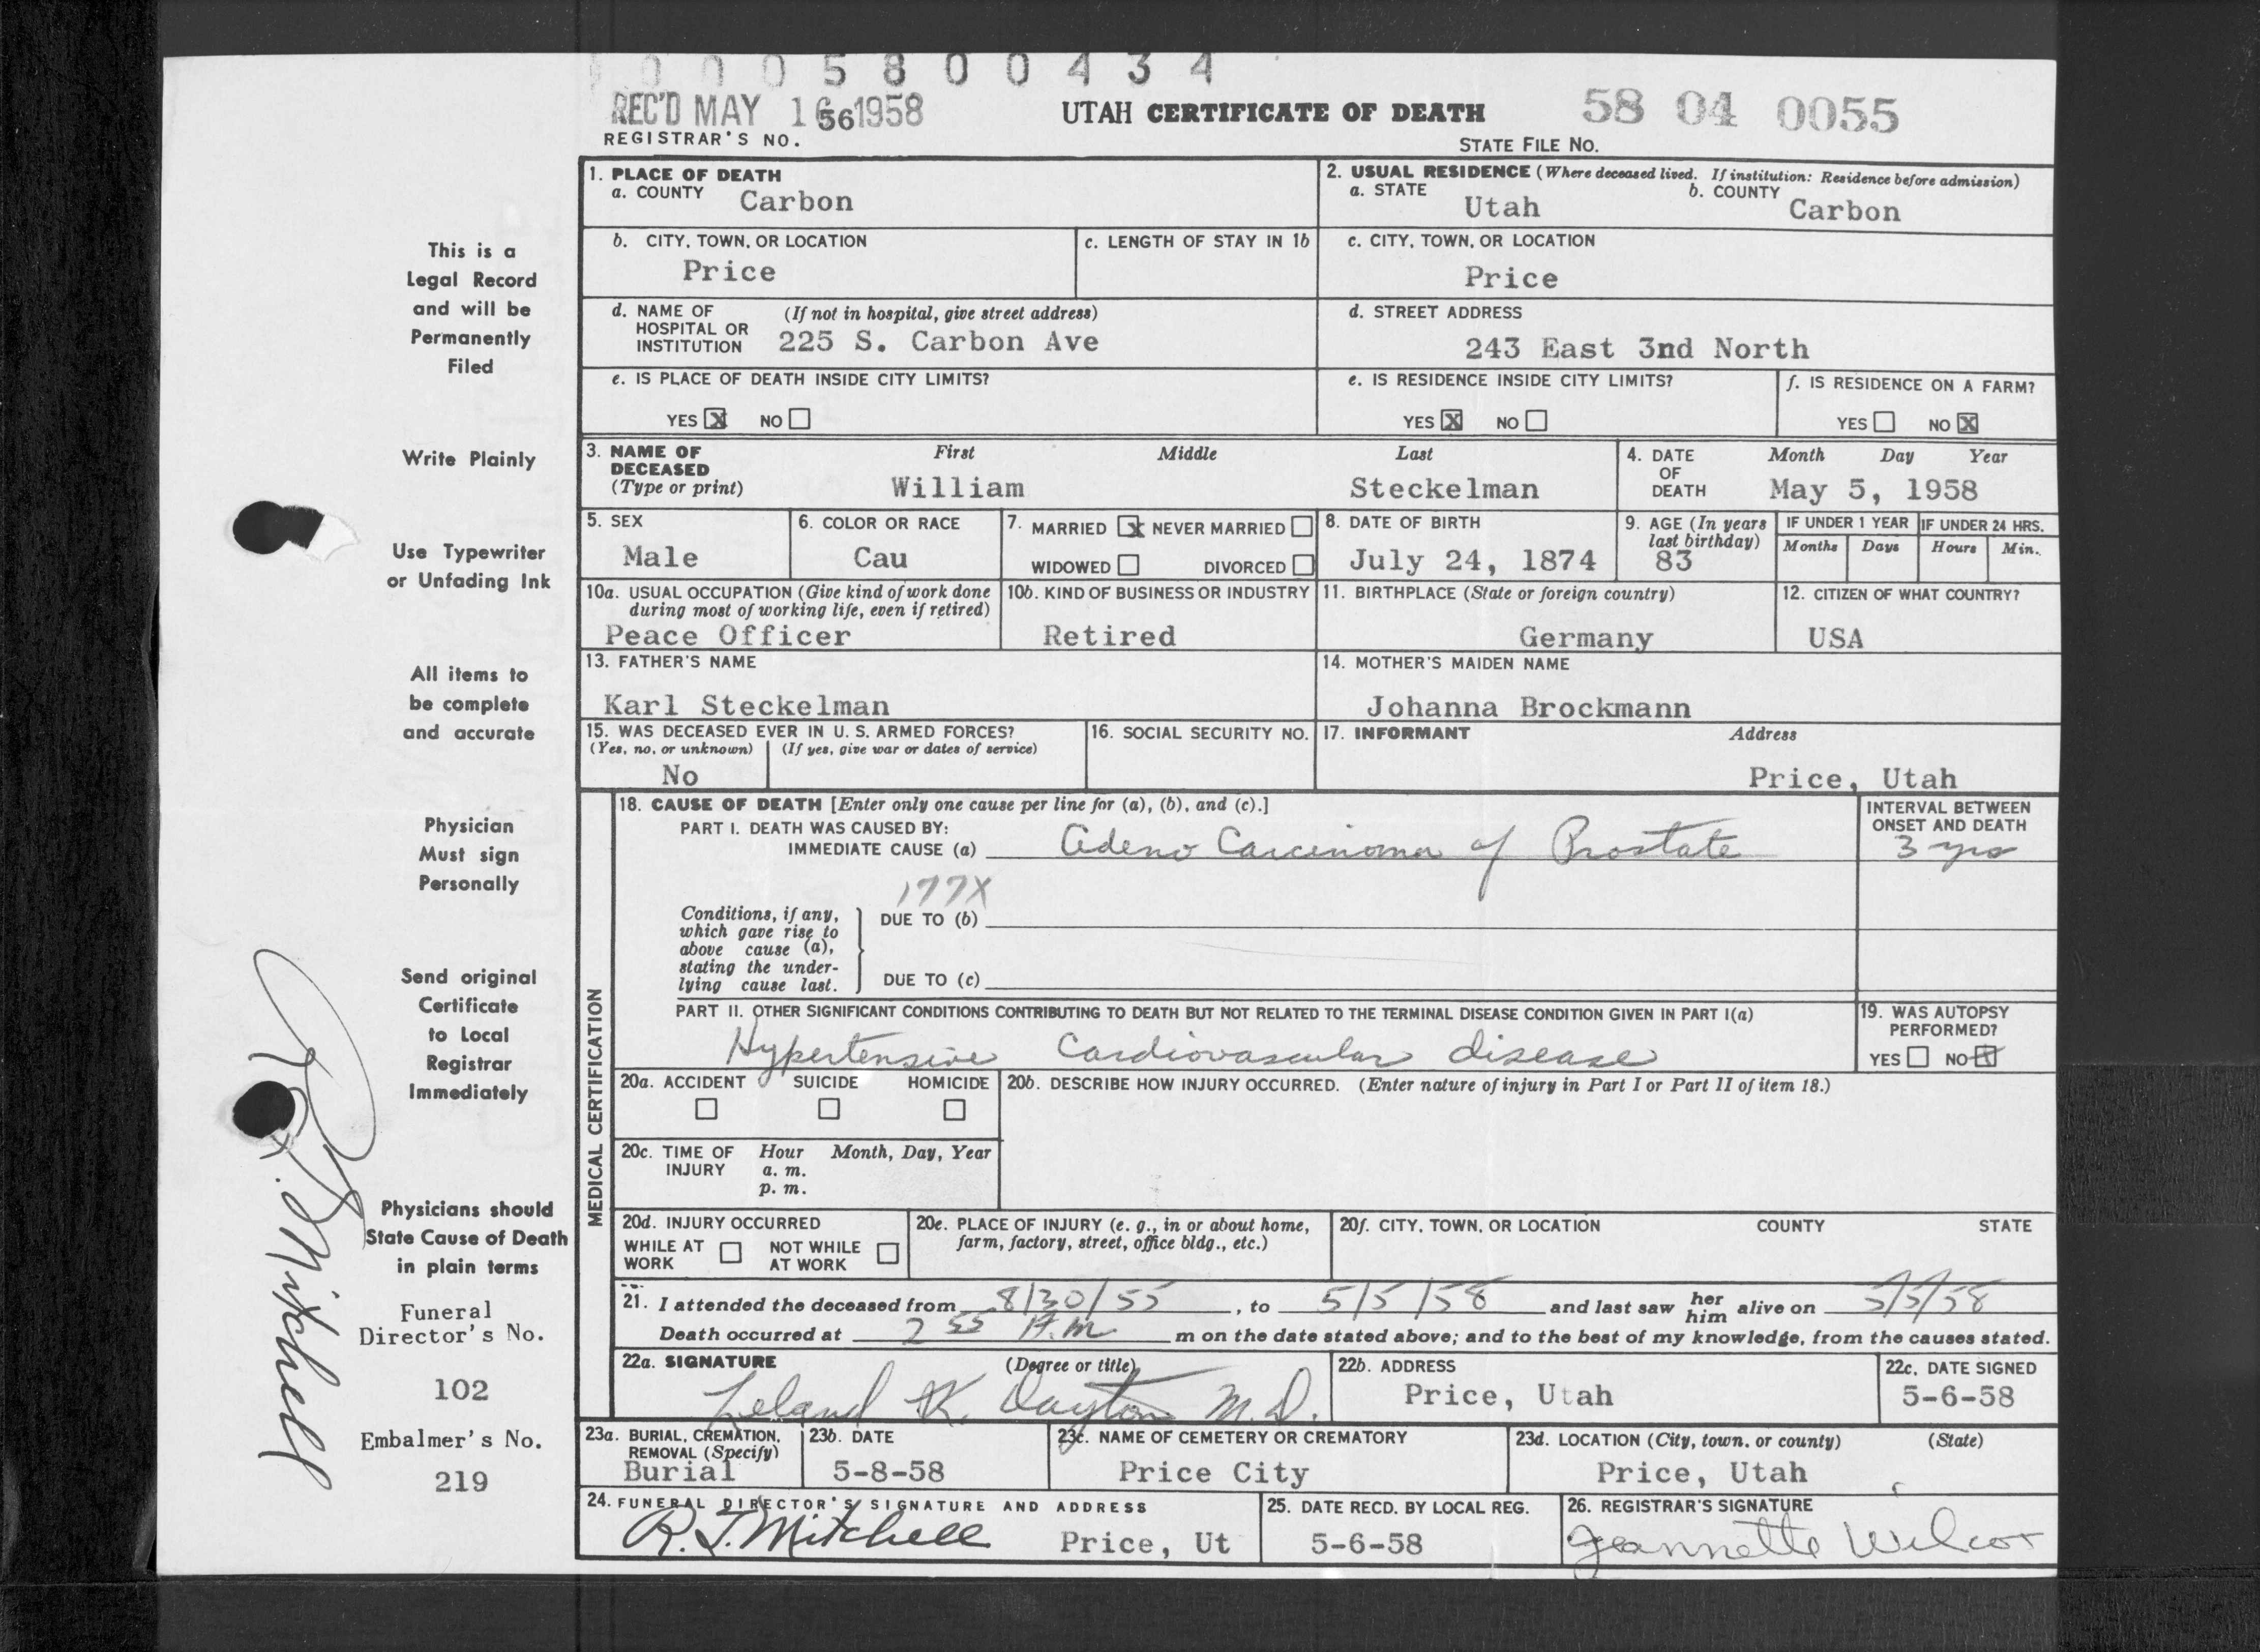 0 0 0 5 8 0 0 4 3 4
REC'D MAY 16 1958
56
UTAH CERTIFICATE OF DEATH
58 04 0055
REGISTRAR'S NO.
STATE FILE NO.
1. PLACE OF DEATH
a. COUNTY Carbon
2. USUAL RESIDENCE (Where deceased lived. If institution: Residence before admission)
a. STATE Utah b. COUNTY Carbon
b. CITY, TOWN, OR LOCATION
Price
c. LENGTH OF STAY IN 1b
c. CITY, TOWN, OR LOCATION
Price
d. NAME OF HOSPITAL OR INSTITUTION (If not in hospital, give street address)
225 S. Carbon Ave
d. STREET ADDRESS
243 East 3nd North
e. IS PLACE OF DEATH INSIDE CITY LIMITS?
YES X NO
e. IS RESIDENCE INSIDE CITY LIMITS?
YES X NO
f. IS RESIDENCE ON A FARM?
YES NO X
3. NAME OF DECEASED (Type or print) First Middle Last
William Steckelman
4. DATE OF DEATH Month Day Year
May 5, 1958
5. SEX
Male
6. COLOR OR RACE
Cau
7. MARRIED X NEVER MARRIED
WIDOWED DIVORCED
8. DATE OF BIRTH
July 24, 1874
9. AGE (In years last birthday)
83
IF UNDER 1 YEAR IF UNDER 24 HRS.
Months Days Hours Min.
10a. USUAL OCCUPATION (Give kind of work done during most of working life, even if retired)
Peace Officer
10b. KIND OF BUSINESS OR INDUSTRY
Retired
11. BIRTHPLACE (State or foreign country)
Germany
12. CITIZEN OF WHAT COUNTRY?
USA
13. FATHER'S NAME
Karl Steckelman
14. MOTHER'S MAIDEN NAME
Johanna Brockmann
15. WAS DECEASED EVER IN U. S. ARMED FORCES?
(Yes, no, or unknown) (If yes, give war or dates of service)
No
16. SOCIAL SECURITY NO.
17. INFORMANT Address
Price, Utah
MEDICAL CERTIFICATION
18. CAUSE OF DEATH [Enter only one cause per line for (a), (b), and (c).]
INTERVAL BETWEEN ONSET AND DEATH
PART I. DEATH WAS CAUSED BY:
IMMEDIATE CAUSE (a) Adeno Carcinoma of Prostate
3 yrs
177X
Conditions, if any, which gave rise to above cause (a), stating the underlying cause last.
DUE TO (b)
DUE TO (c)
PART II. OTHER SIGNIFICANT CONDITIONS CONTRIBUTING TO DEATH BUT NOT RELATED TO THE TERMINAL DISEASE CONDITION GIVEN IN PART I(a)
Hypertensive Cardiovascular disease
19. WAS AUTOPSY PERFORMED?
YES NO X
20a. ACCIDENT SUICIDE HOMICIDE
20b. DESCRIBE HOW INJURY OCCURRED. (Enter nature of injury in Part I or Part II of item 18.)
20c. TIME OF INJURY Hour Month, Day, Year
a. m.
p. m.
20d. INJURY OCCURRED
WHILE AT WORK NOT WHILE AT WORK
20e. PLACE OF INJURY (e. g., in or about home, farm, factory, street, office bldg., etc.)
20f. CITY, TOWN, OR LOCATION COUNTY STATE
21. I attended the deceased from 8/30/55, to 5/5/58 and last saw her him alive on 5/5/58
Death occurred at 2 55 P.m m on the date stated above; and to the best of my knowledge, from the causes stated.
22a. SIGNATURE (Degree or title)
Leland K. Dayton M.D.
22b. ADDRESS
Price, Utah
22c. DATE SIGNED
5-6-58
23a. BURIAL, CREMATION, REMOVAL (Specify)
Burial
23b. DATE
5-8-58
23c. NAME OF CEMETERY OR CREMATORY
Price City
23d. LOCATION (City, town, or county) (State)
Price, Utah
24. FUNERAL DIRECTOR'S SIGNATURE AND ADDRESS
R. J. Mitchell Price, Ut
25. DATE RECD. BY LOCAL REG.
5-6-58
26. REGISTRAR'S SIGNATURE
Jeannette Wilcox
This is a
Legal Record
and will be
Permanently
Filed
Write Plainly
Use Typewriter
or Unfading Ink
All items to
be complete
and accurate
Physician
Must sign
Personally
Send original
Certificate
to Local
Registrar
Immediately
Physicians should
State Cause of Death
in plain terms
Funeral
Director's No.
102
Embalmer's No.
219
R. J. Mitchell